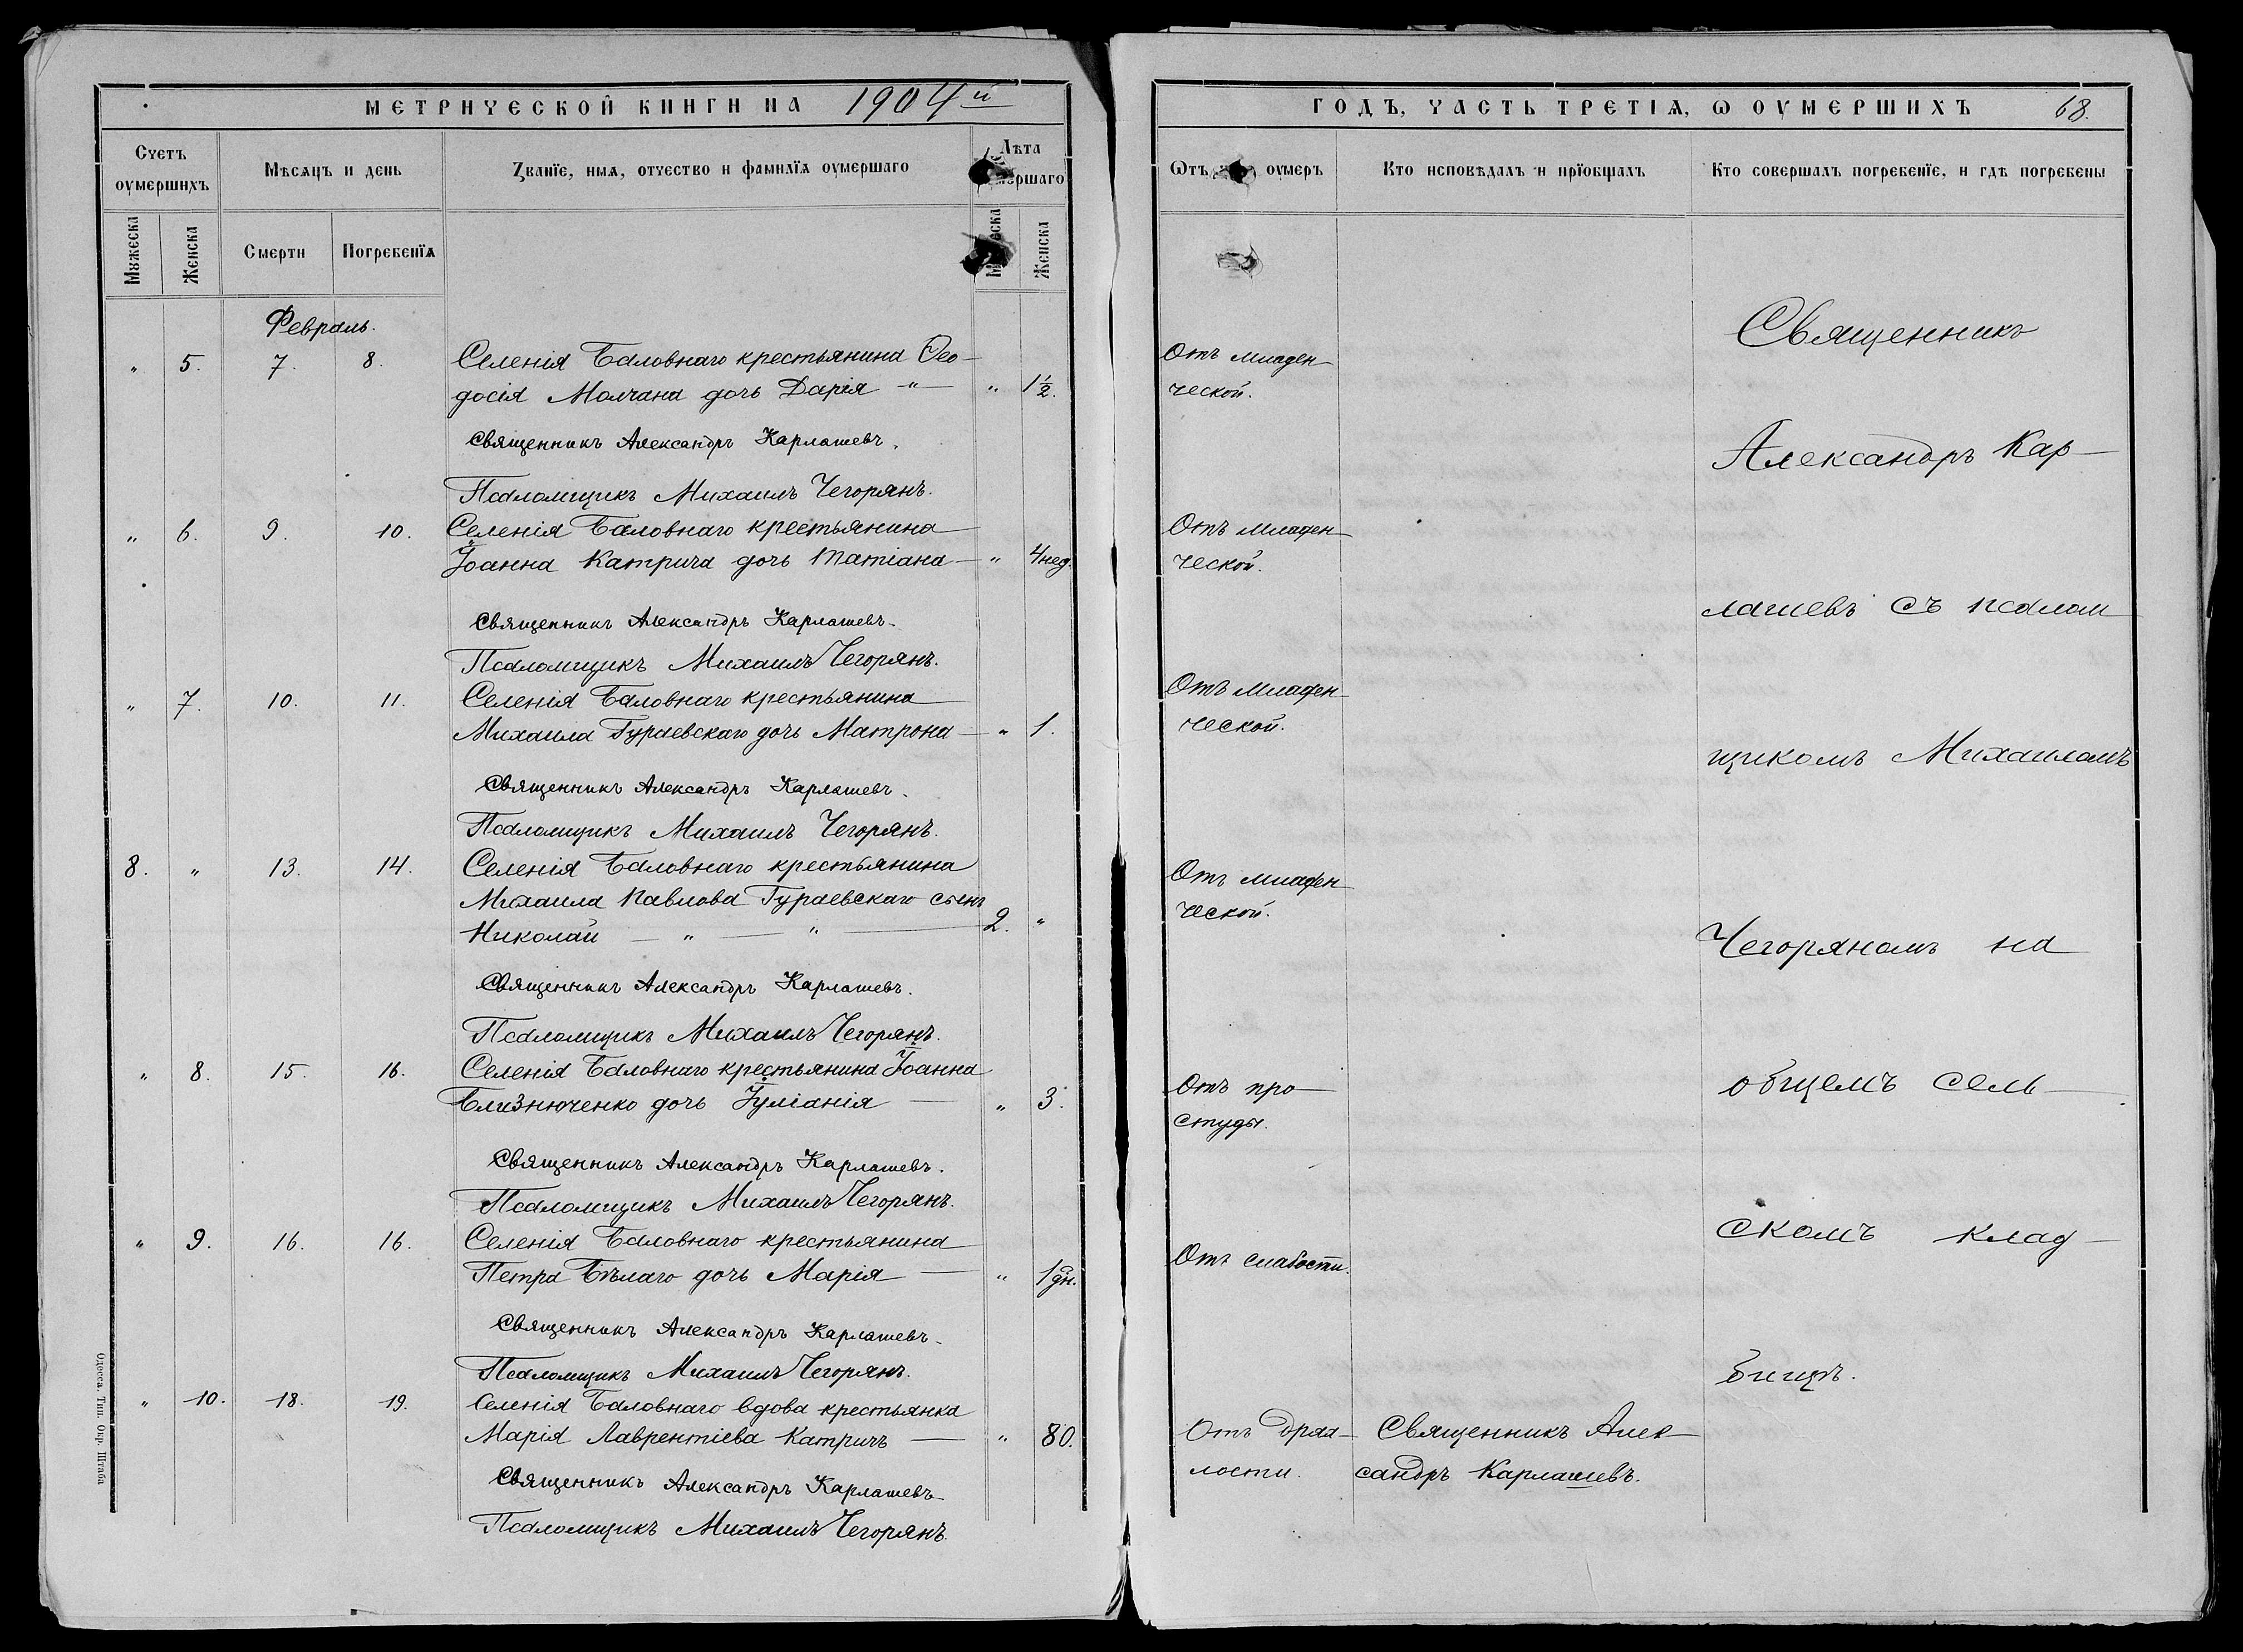 МЕТРИЧЕСКОЙ КНИГИ НА 1904й
Счетъ оумершихъ
Мѣсяцъ и день
Званїе, имѧ, отчество и фамилїѧ оумершаго
Лѣта
Мужеска
Женска
Смерти
Погребенїѧ
Женска
Февраль.
" 5. 7. 8. Селенія Баловнаго крестьянина Ѳео-
досія Молчана дочь Дарія — " — " 1½.
Священникъ Александръ Карлашевъ.
Псаломщикъ Михаилъ Чегорянъ.
" 6. 9. 10. Селенія Баловнаго крестьянина
Іоанна Катрича дочь Татіана — " 4 нед.
Священникъ Александръ Карлашевъ.
Псаломщикъ Михаилъ Чегорянъ.
" 7. 10. 11. Селенія Баловнаго крестьянина
Михаила Гураевскаго дочь Матрона — " 1.
Священникъ Александръ Карлашевъ.
Псаломщикъ Михаилъ Чегорянъ.
8. " 13. 14. Селенія Баловнаго крестьянина
Михаила Павлова Гураевскаго сынъ
Николай — " — " — 2. "
Священникъ Александръ Карлашевъ.
Псаломщикъ Михаилъ Чегорянъ.
" 8. 15. 16. Селенія Баловнаго крестьянина Іоанна
Близнюченко дочь Іуліанія — " 3.
Священникъ Александръ Карлашевъ.
Псаломщикъ Михаилъ Чегорянъ.
" 9. 16. 16. Селенія Баловнаго крестьянина
Петра Бѣлаго дочь Марія — " 1 дн.
Священникъ Александръ Карлашевъ.
Псаломщикъ Михаилъ Чегорянъ.
" 10. 18. 19. Селенія Баловнаго вдова крестьянка
Марія Лаврентіева Катричъ — " 80.
Священникъ Александръ Карлашевъ
Псаломщикъ Михаилъ Чегорянъ.
Одесса. Тип. Окр. Штаба
ГОДЪ, ЧАСТЬ ТРЕТІѦ, Ѡ ОУМЕРШИХЪ 68.
Ѿтъ оумеръ
Кто исповѣдалъ и прїобщалъ
Кто совершалъ погребенїе, и гдѣ погребены
Отъ младен-
ческой.
Отъ младен-
ческой.
Отъ младен-
ческой.
Отъ младен-
ческой.
Отъ про-
студы.
Отъ слабости.
Отъ дрях-
лости.
Священникъ Алек-
сандръ Карлашевъ.
Священникъ
Александръ Кар-
лашевъ съ псалом
щикомъ Михаиломъ
Чегоряномъ на
общемъ сель-
скомъ клад-
бищѣ.